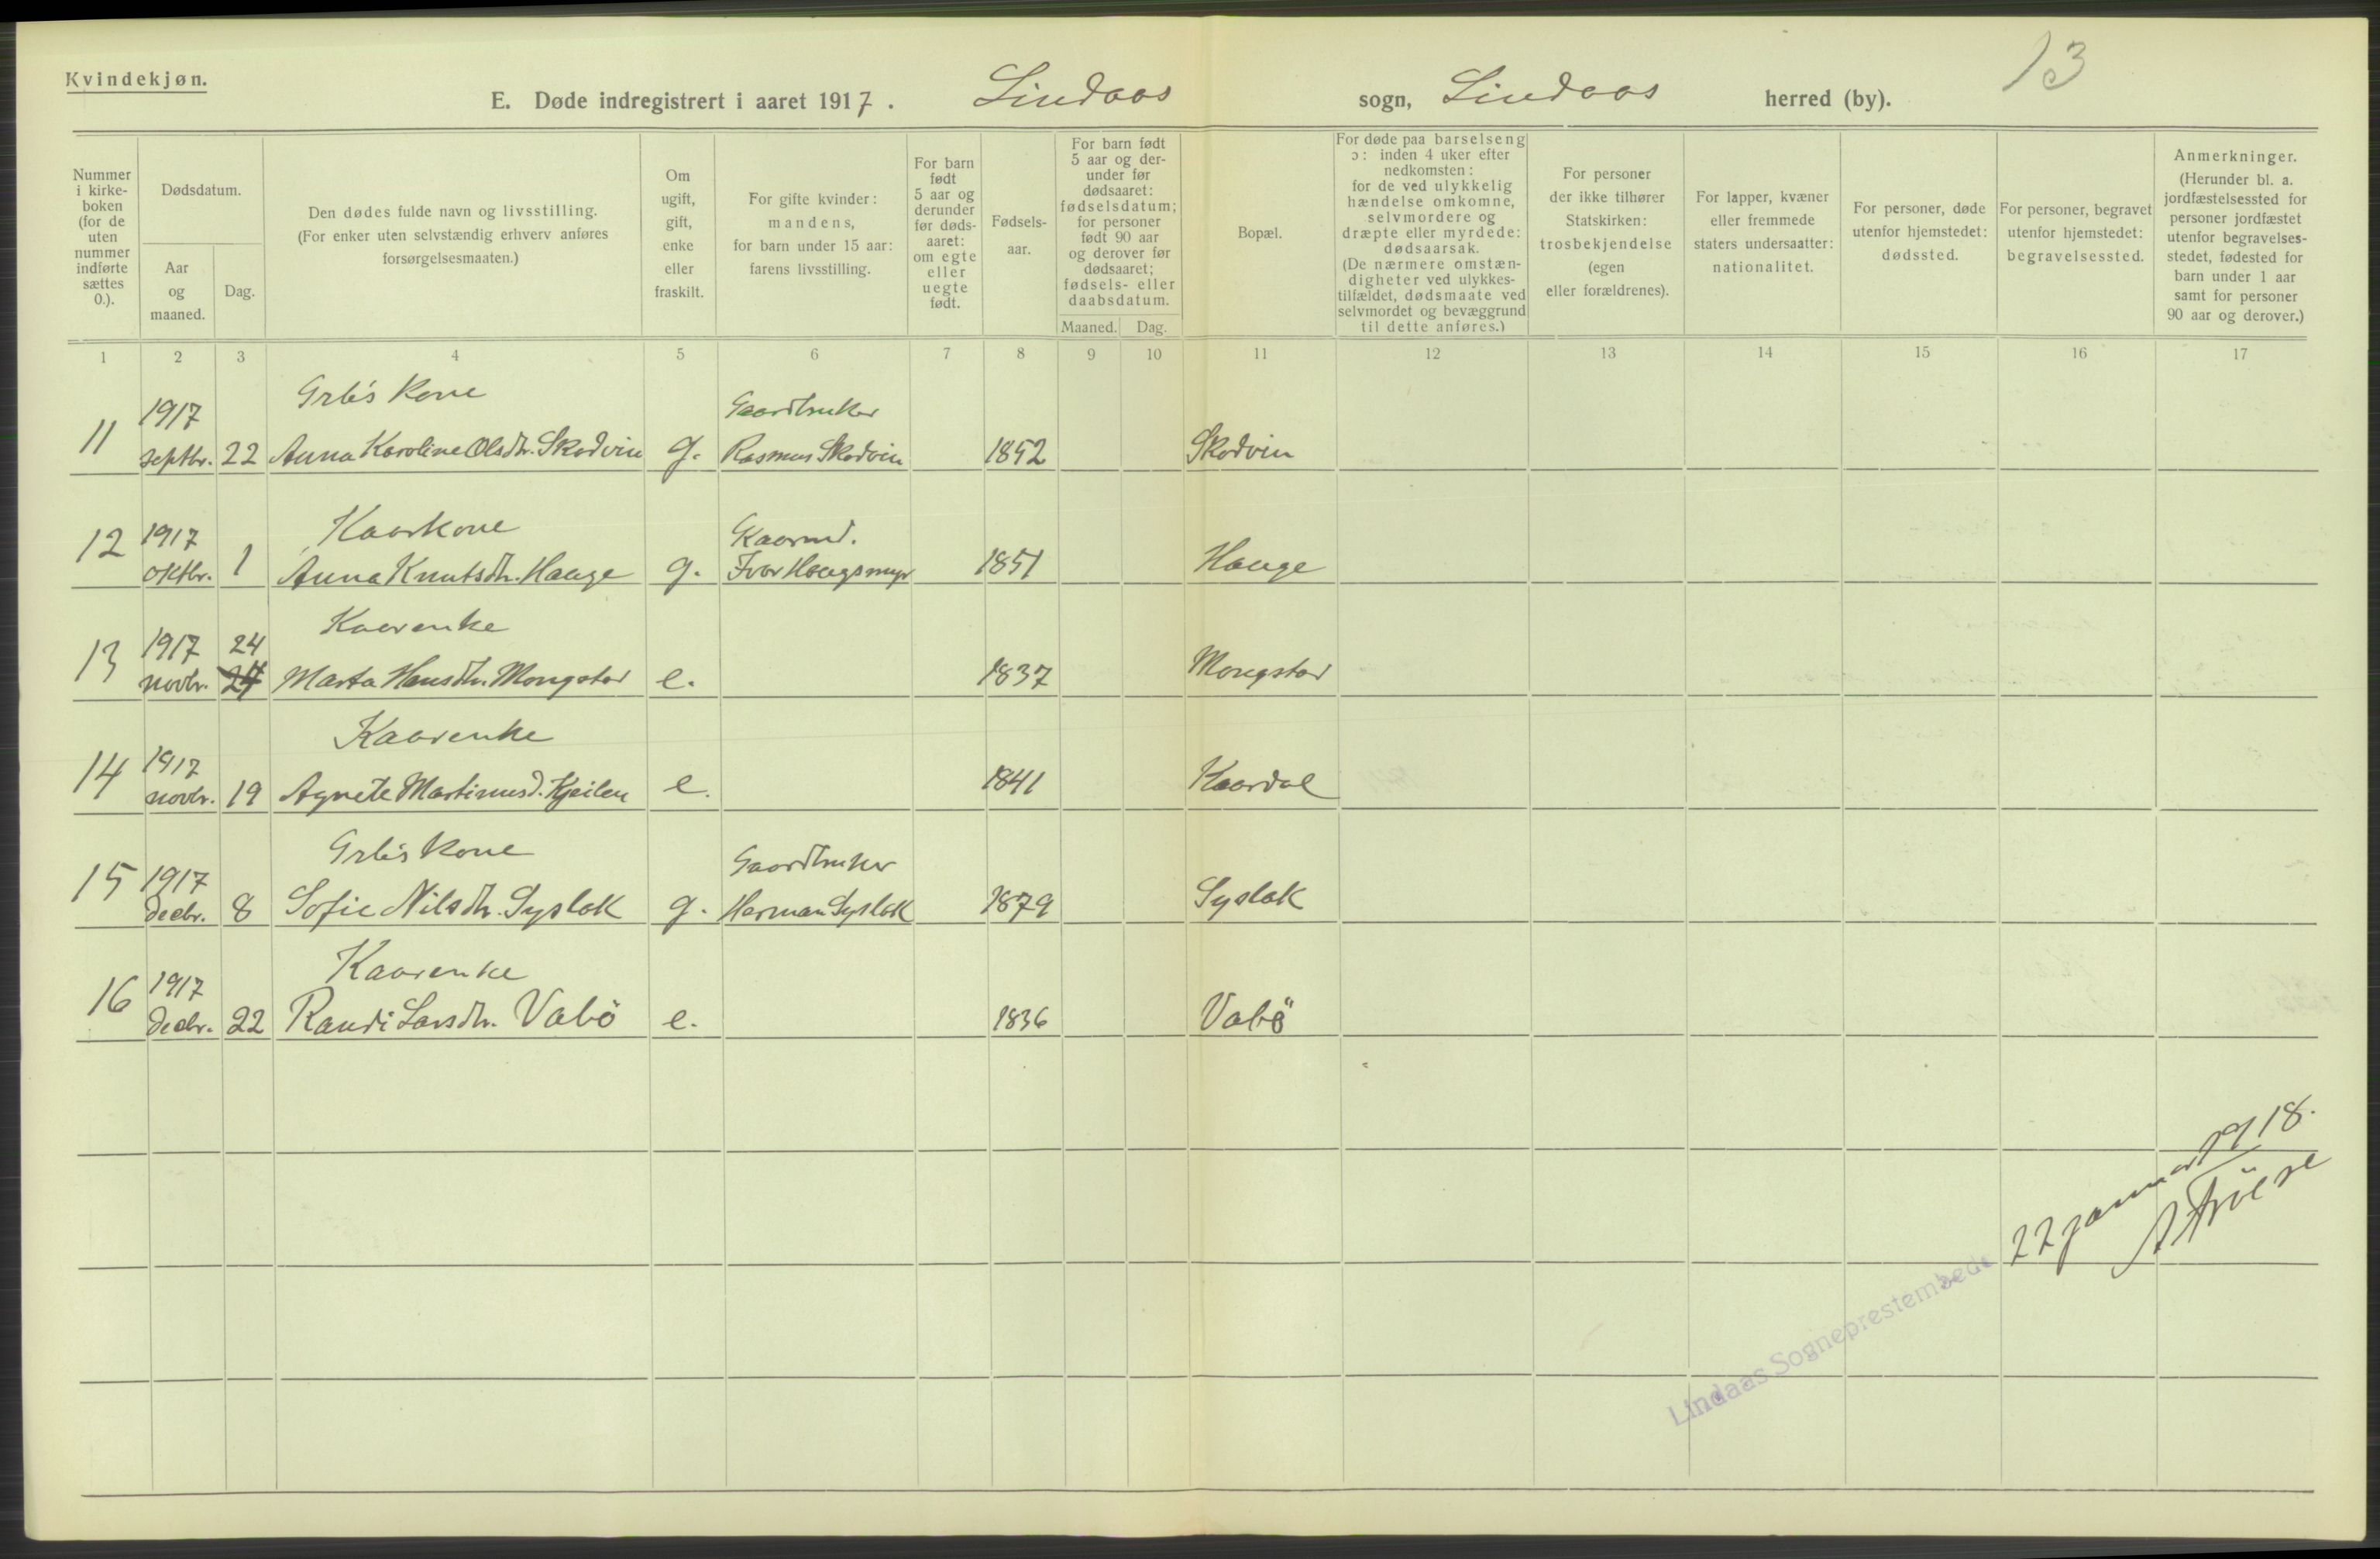 Kvindekjøn.
13
E. Døde indregistrert i aaret 1917. Lindaas sogn, Lindaas herred (by).
Nummer i kirke-boken (for de uten nummer indførte sættes 0.).
Dødsdatum.
Aar og maaned.
Dag.
Den dødes fulde navn og livsstilling.
(For enker uten selvstændig erhverv anføres
forsørgelsesmaaten.)
Om ugift, gift, enke eller fraskilt.
For gifte kvinder: mandens, for barn under 15 aar: farens livsstilling.
For barn født 5 aar og derunder før døds-aaret: om egte eller uegte født.
Fødsels-aar.
For barn født 5 aar og der-under før dødsaaret: fødselsdatum; for personer født 90 aar og derover før dødsaaret; fødsels- eller daabsdatum.
Maaned. Dag.
Bopæl.
For døde paa barselseng ɔ: inden 4 uker efter nedkomsten: for de ved ulykkelig hændelse omkomne, selvmordere og dræpte eller myrdede: dødsaarsak. (De nærmere omstæn-digheter ved ulykkes-tilfældet, dødsmaate ved selvmordet og bevæggrund til dette anføres.)
For personer der ikke tilhører Statskirken: trosbekjendelse (egen eller forældrenes).
For lapper, kvæner eller fremmede staters undersaatter: nationalitet.
For personer, døde utenfor hjemstedet: dødssted.
For personer, begravet utenfor hjemstedet: begravelsessted.
Anmerkninger. (Herunder bl. a. jordfæstelsessted for personer jordfæstet utenfor begravelses-stedet, fødested for barn under 1 aar samt for personer 90 aar og derover.)
1 2 3 4 5 6 7 8 9 10 11 12 13 14 15 16 17
1917 Grb's Kone Gaardbruker
11 septbr. 22 Anna Karoline Olsdtr. Skodvin g. Rasmus Skodvin 1852 Skodvin
1917 Kaarkone Kaarmd.
12 oktbr. 1 Anna Knutsdtr. Hauge g. Ivar Haugsmyr 1851 Hauge
1917 24 Kaarenke
13 novbr. 24 Marta Hansdtr. Mongstad e. 1837 Mongstad
1917 Kaarenke
14 novbr. 19 Agnete Martinusd. Kjeilen e. 1841 Kaardal
1917 Grb's Kone Gaardbruker
15 decbr. 8 Sofie Nilsdtr. Syslak g. Herman Syslak 1879 Syslak
1917 Kaarenke
16 decbr. 22 Randi Larsdtr. Vabö e. 1836 Vabö
22 januar 1918.
Lindaas Sogneprestembede